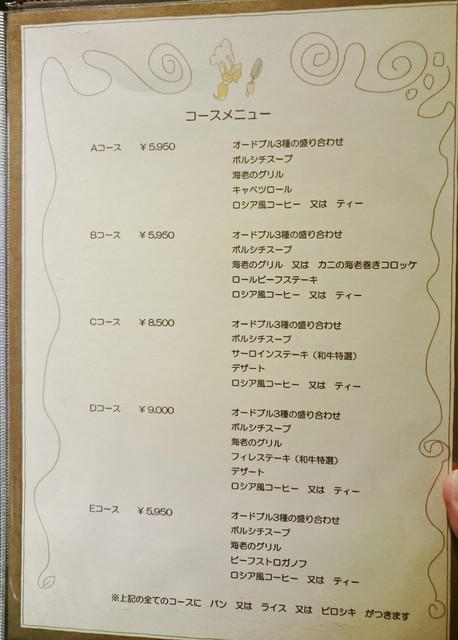 コースメニュー
Aコース ￥5,950 オードブル3種の盛り合わせ
ボルシチスープ
海老のグリル
キャベツロール
ロシア風コーヒー 又は ティー
Bコース ￥5,950 オードブル3種の盛り合わせ
ボルシチスープ
海老のグリル 又は カニの海老巻きコロッケ
ロールビーフステーキ
ロシア風コーヒー 又は ティー
Cコース ￥8,500 オードブル3種の盛り合わせ
ボルシチスープ
サーロインステーキ（和牛特選）
デザート
ロシア風コーヒー 又は ティー
Dコース ￥9,000 オードブル3種の盛り合わせ
ボルシチスープ
海老のグリル
フィレステーキ（和牛特選）
デザート
ロシア風コーヒー 又は ティー
Eコース ￥5,950 オードブル3種の盛り合わせ
ボルシチスープ
海老のグリル
ビーフストロガノフ
ロシア風コーヒー 又は ティー
※上記の全てのコースに パン 又は ライス 又は ピロシキ がつきます